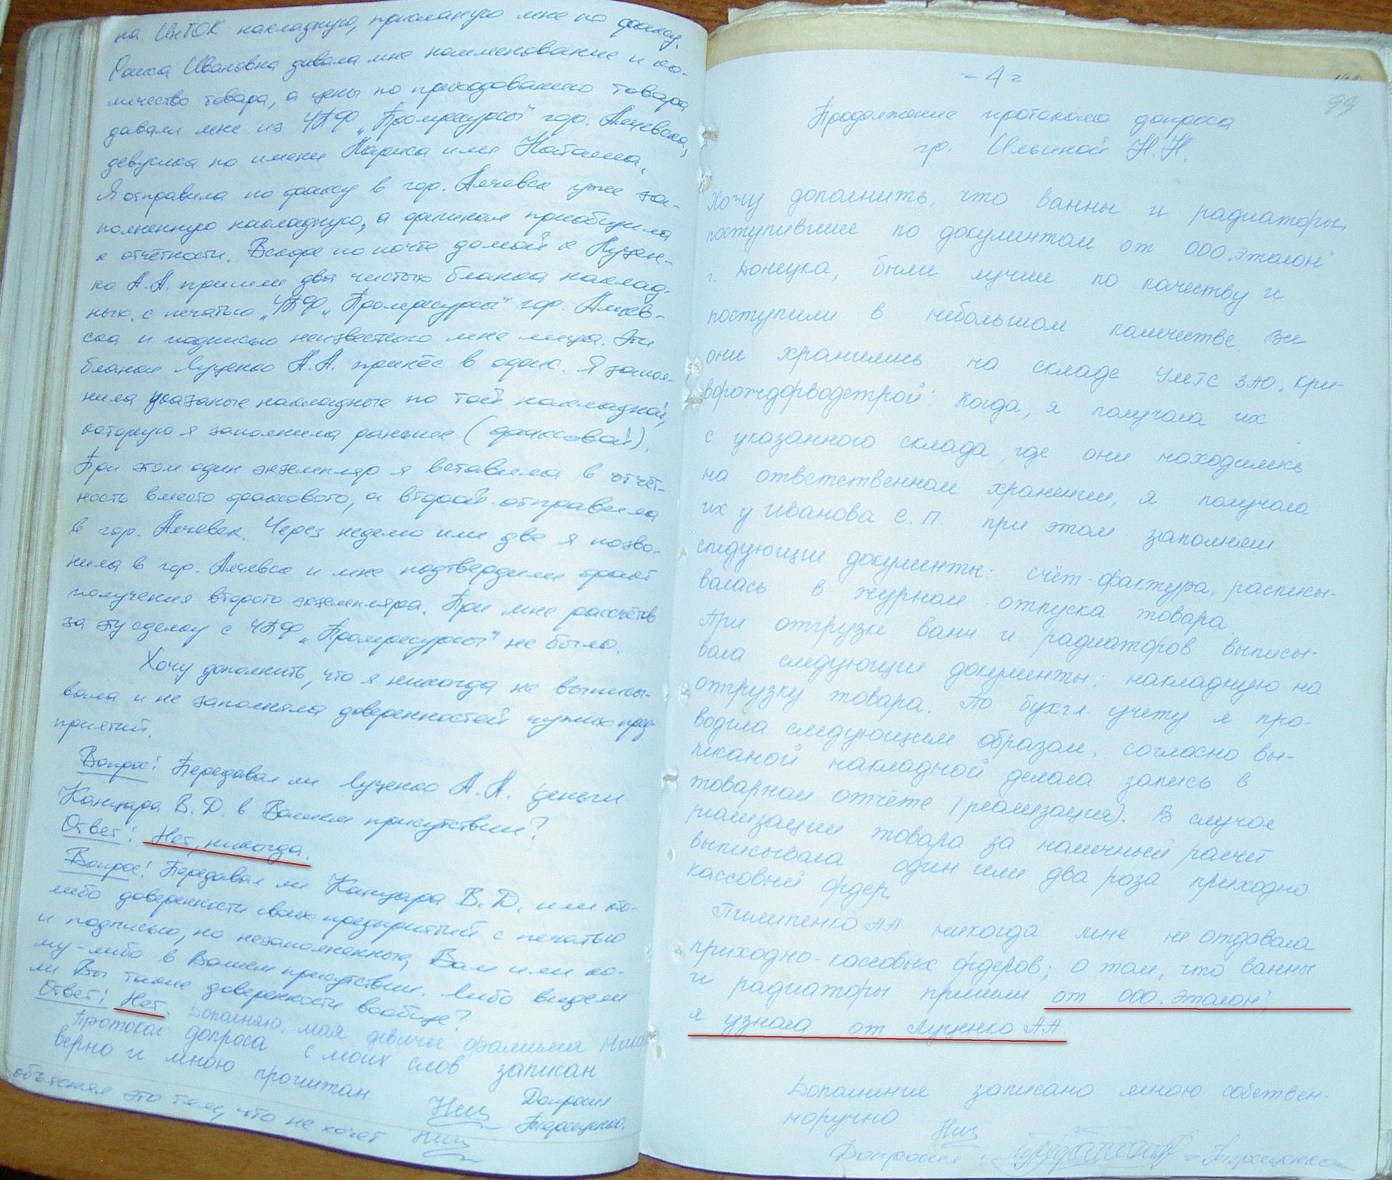 на ИнТОК накладную, присланную мне по факсу.
Раиса Ивановна давала мне наименование и ко-
личество товара, а цены по приходованию товара
давали мне из ЧПФ „Промресурсы" гор. Алчевска,
девушка по имени Лариса или Наташа.
Я отправила по факсу в гор. Алчевск уже за-
полненную накладную, а оригинал приобщила
к отчётности. Вскоре по почте домой к Луцен-
ко А.А. пришли два чистых бланка наклад-
ных, с печатью ЧПФ „Промресурсы" гор. Алчев-
ска и подписью неизвестного мне лица. Эти
бланки Луценко А.А. принёс в офис. Я запол-
нила указаные накладные по той накладной,
которую я заполнила раньше (факсовой).
При этом один экземпляр я вставила в отчёт-
ность вместо факсового, а второй отправила
в гор. Алчевск. Через неделю или две я позво-
нила в гор. Алчевск и мне подтвердили факт
получения второго экземпляра. При мне рассчётов
за эту сделку с ЧПФ „Промресурсы" не было.
Хочу дополнить, что я никогда не выписы-
вала и не заполняла доверенностей чужих пред-
приятий.
Вопрос: Передавал ли Луценко А.А. деньги
Канцара В.Д. в Вашем присутствии?
Ответ: Нет, никогда.
Вопрос: Передавал ли Канцара В.Д. или кто-
либо доверенности своих предприятий с печатью
и подписью, но незаполненные, Вам или ко-
му-либо в Вашем присутствии. Либо видели
ли Вы такие доверенности вообще?
Ответ: Нет. Дополняю, моя девичья фамилия
Протокол допроса с моих слов записан
верно и мною прочитан
Допросил
объясняя это тем, что не хочет
= 4 =
94
Продолжение протокола допроса
гр. Ильиной Н.Н.
Хочу дополнить, что ванны и радиаторы,
поступившие по документам от ООО „Эталон"
г. Донецка, были лучше по качеству и
поступили в небольшом количестве.
они хранились на складе УМТС ЗАО „Кри-
ворождорводстрой". Когда, я получала их
с указанного склада, где они находились
на ответственном хранении, я получала
их у Иванова С.П. при этом заполняли
следующии документы: счёт-фактура, расписы-
валась в журнал отпуска товара.
При отгрузки ванн и радиаторов выписы-
вала следующии документы: накладную на
отгрузку товара. По бухгл. учету я про-
водила следующим образом, согласно вы-
писаной накладной делала запись в
товарном отчёте (реализация). В случае
реализации товара за наличный расчёт
выписывала один или два раза приходно
кассовый ордер.
Пилипенко А.А. никогда мне не отдавала
приходно-кассовых ордеров; о том, что ванны
и радиаторы пришли от ООО „Эталон",
я узнала от Луценко А.А.
Дополнение записано мною собствен-
норучно
Допросил: